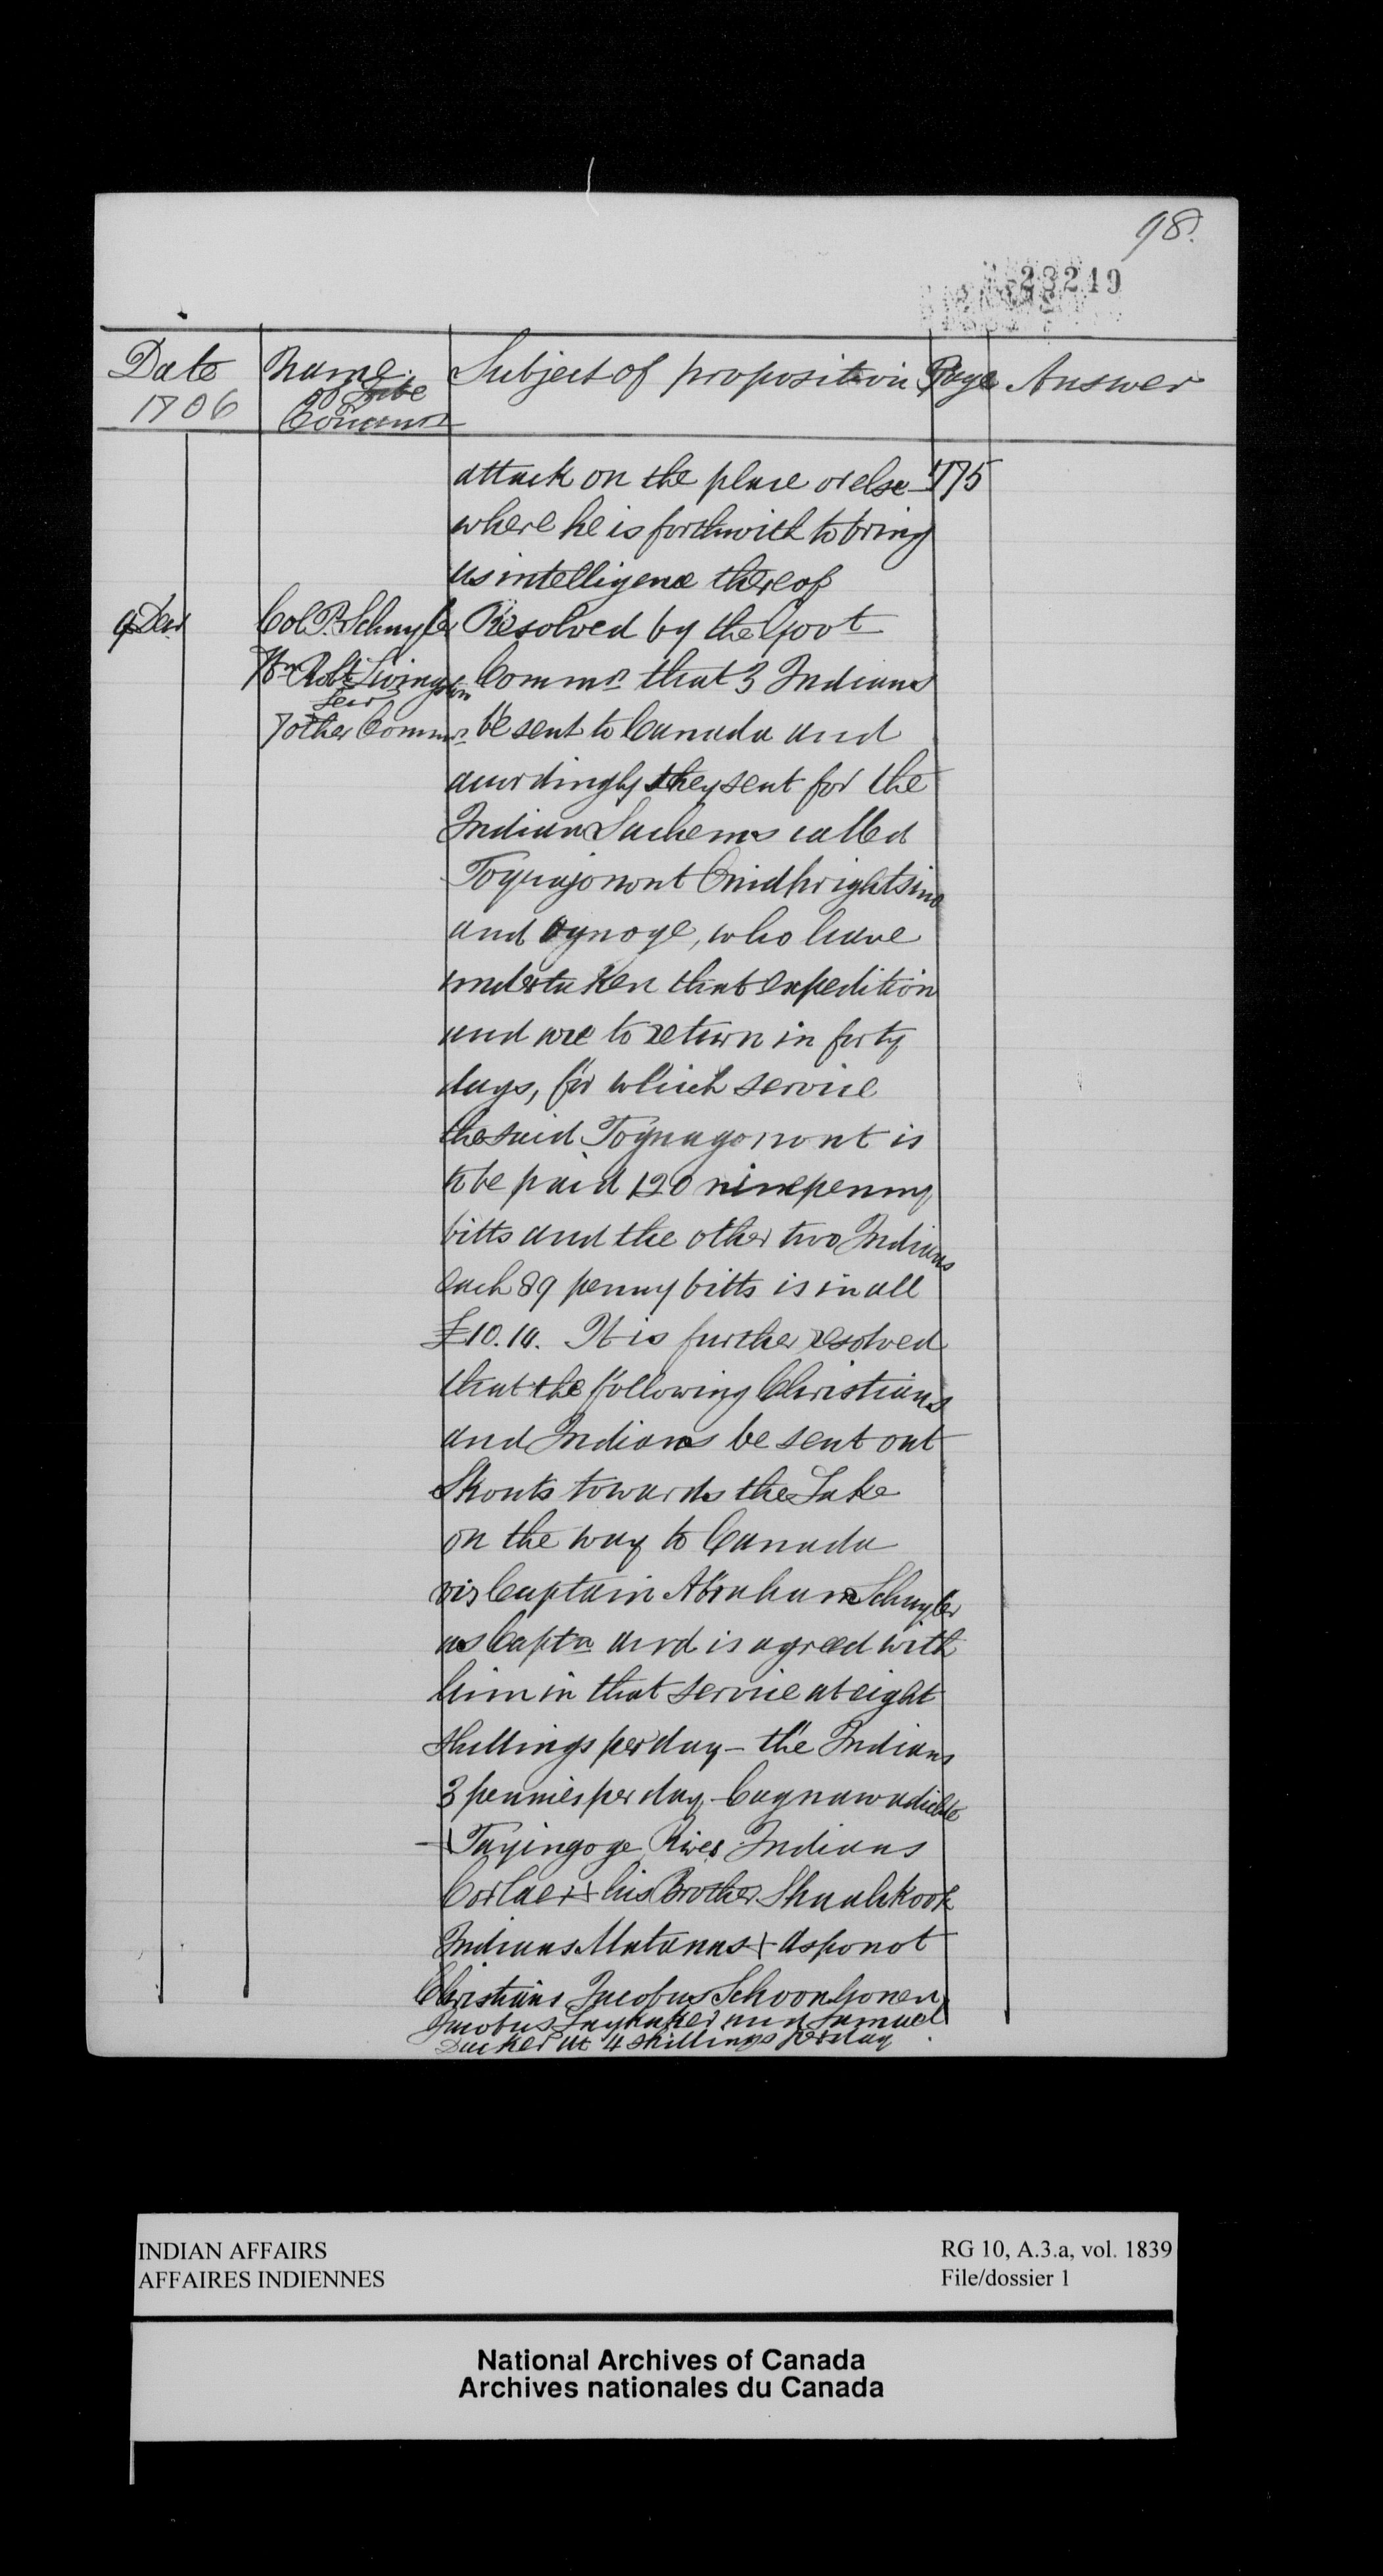 98.
23219
Date Name Subject of proposition Page Answer
1706 of Tribe
Governor
attack on the place or else 175
where he is forthwith to bring
us intelligence thereof
9 Decr Col. P. Schuyler Resolved by the Govt
Robt Livingston Commrs that 3 Indians
Senr
7 other Commrs be sent to Canada and
accordingly they sent for the
Indian Sachems called
Toquajonont Onidhrightsino
and Oynoge, who have
undertaken that expedition
and are to return in forty
days, for which service
the said Toynagonont is
to be paid 120 ninepenny
bitts and the other two Indians
each 89 penny bitts is in all
£10.10. It is further resolved
that the following Christians
and Indians be sent out
Skouts towards the Lake
on the way to Canada
viz Captain Abraham Schuyler
as Captn and is agreed with
him in that service at eight
shillings per day - the Indians
3 pennies per day Cagnawadickte
+ Tayingoge River Indians
Corlaer + his Brother Shaahkook
Indians Matanas + Asponot
Christians Jacobus Schoonhoven
Jacobus and Samuel
Ducker at 4 shillings per day
INDIAN AFFAIRS RG 10, A.3.a, vol. 1839
AFFAIRES INDIENNES File/dossier 1
National Archives of Canada
Archives nationales du Canada